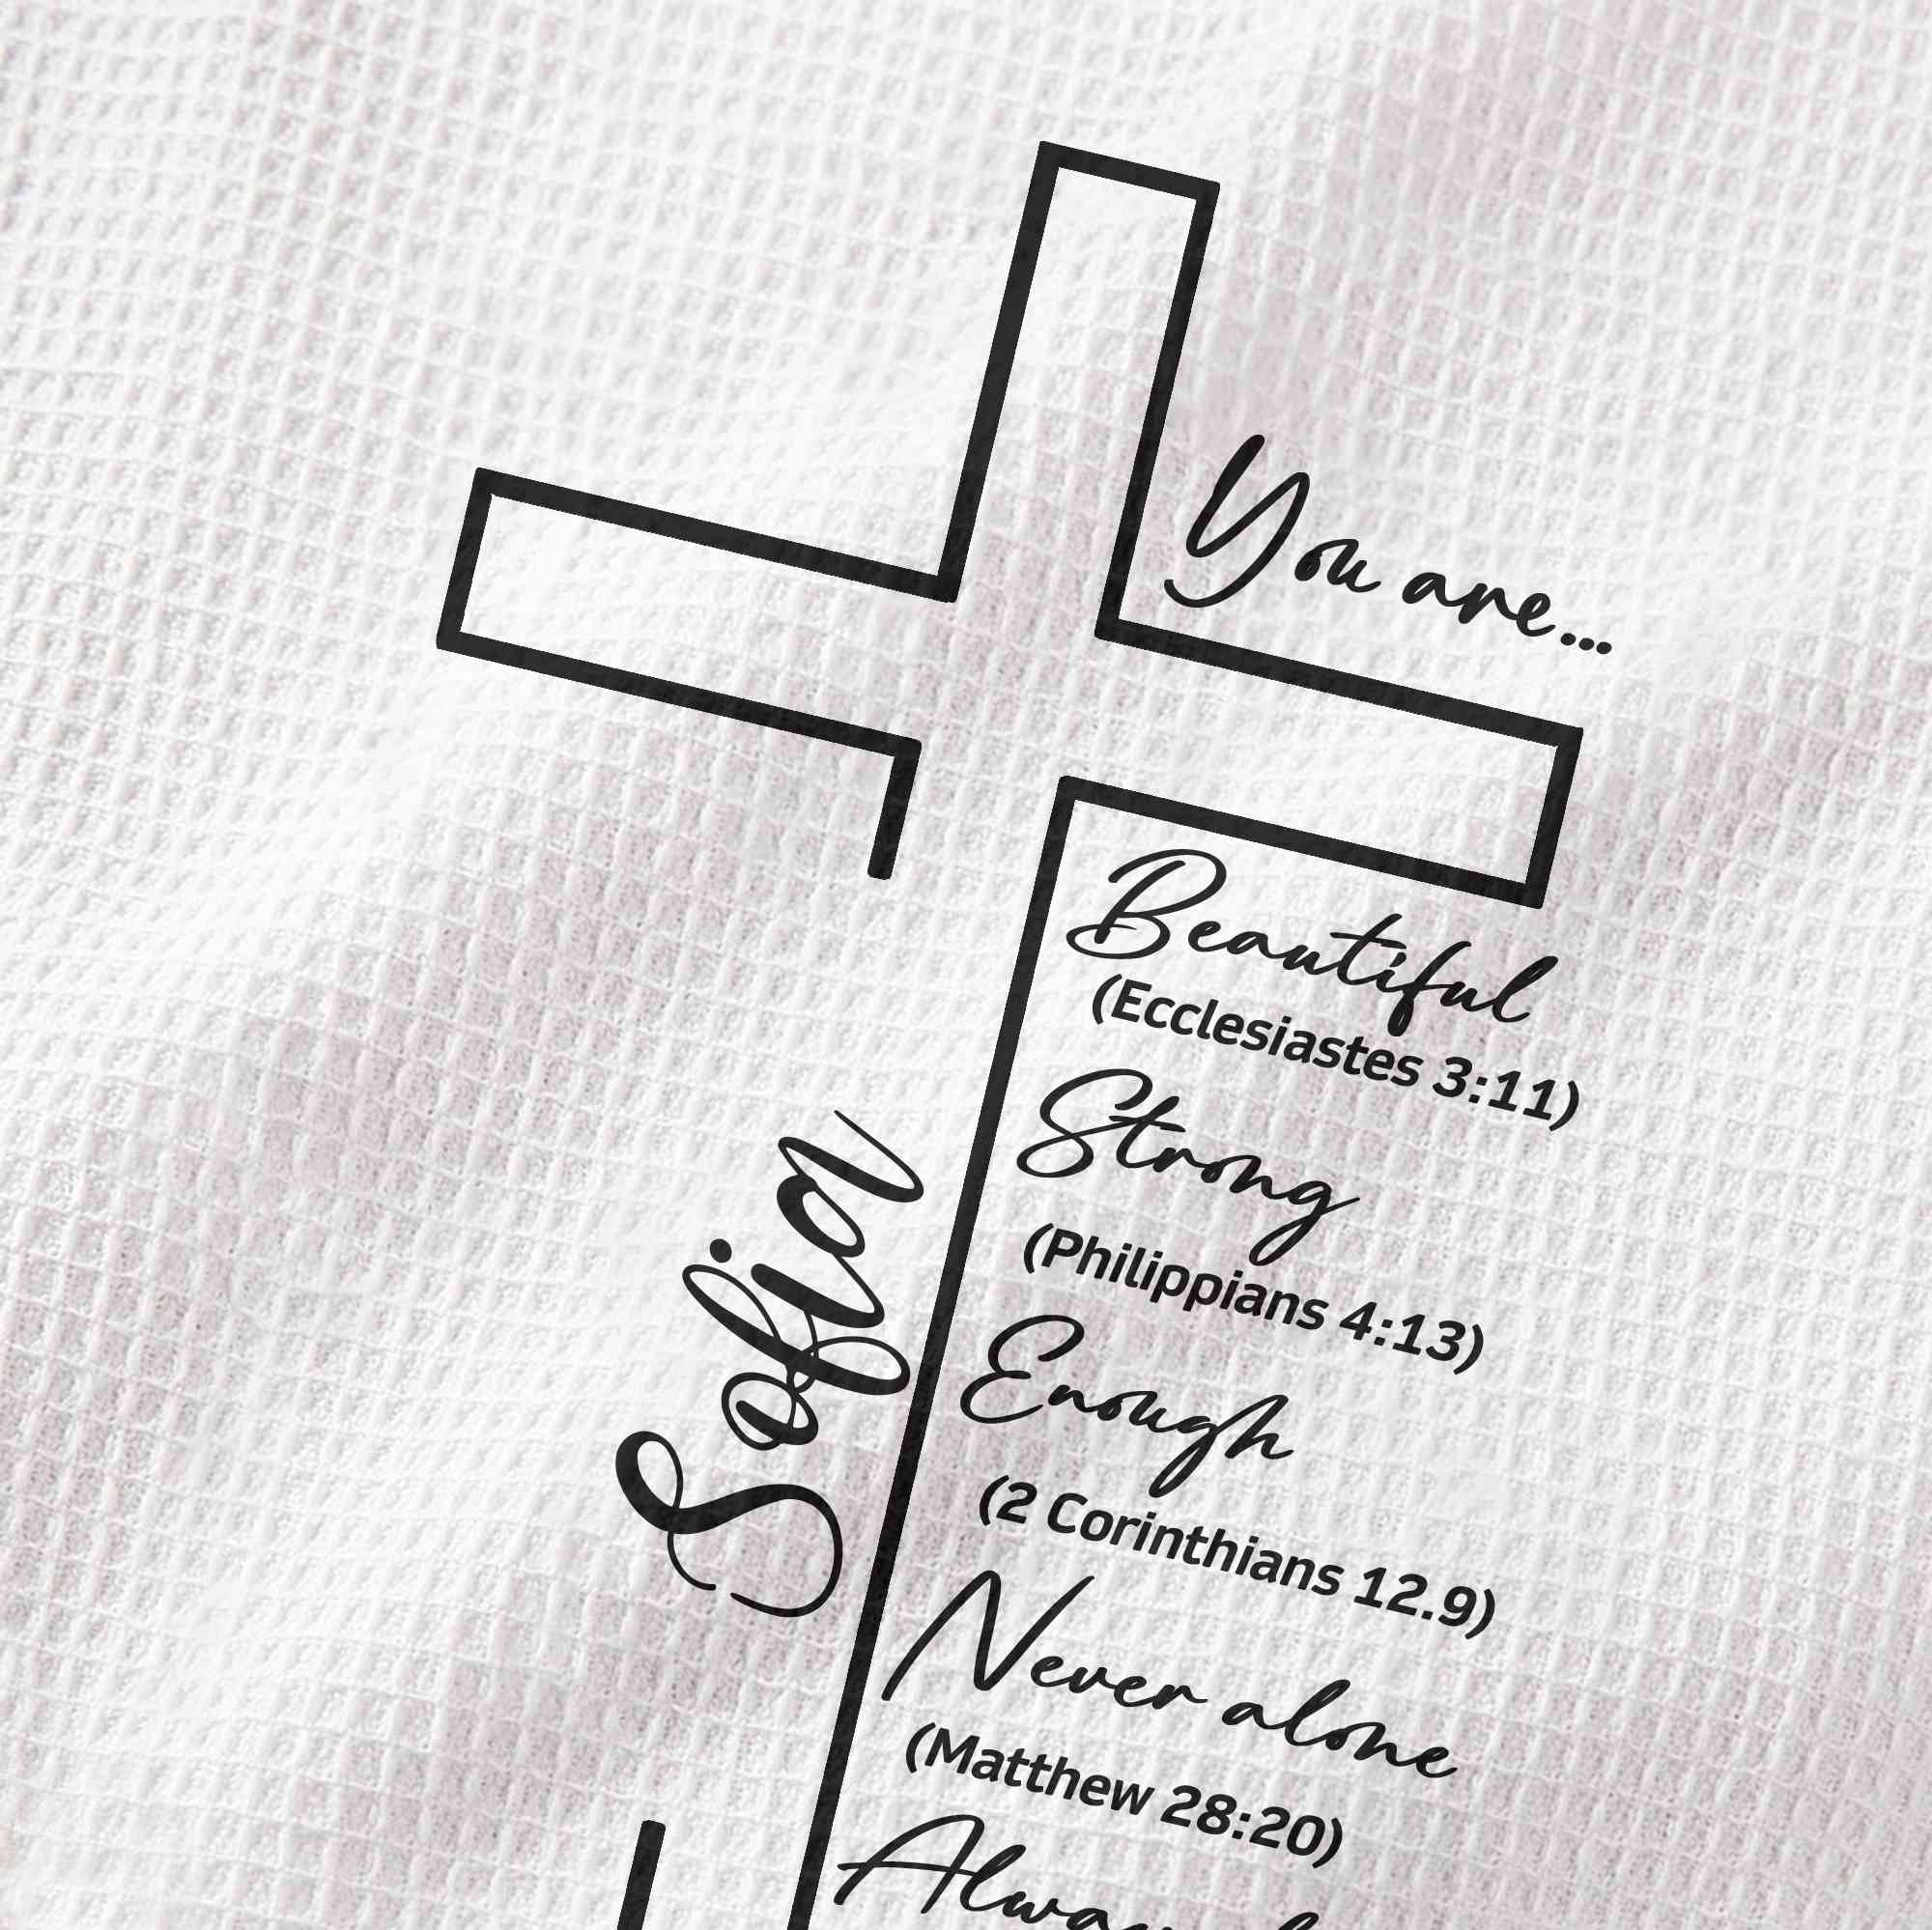 You are...
Beautiful
(Ecclesiastes 3:11)
Strong
(Philippians 4:13)
Enough
(2 Corinthians 12.9)
Never alone
(Matthew 28:20)
Sofia